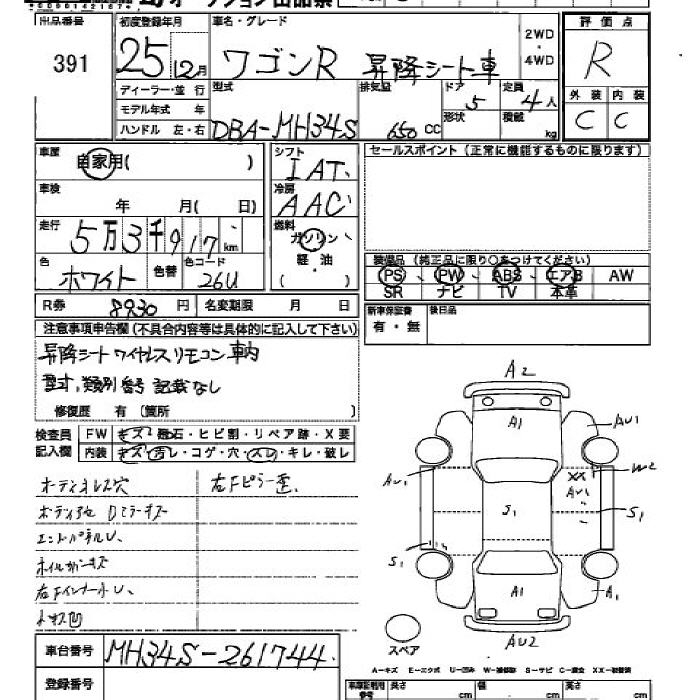 オークション出品票
出品番号 初度登録年月 車名・グレード 評価点
391 25 12月 ワゴンR 昇降シート車 2WD・4WD R
ディーラー・並行 型式 排気量 ドア 定員 外装 内装
モデル年式 年 5 4人 C C
ハンドル 左・右 DBA-MH34S 650 CC 形状 積載 kg
車歴 自家用( ) シフト IAT セールスポイント(正常に機能するものに限ります)
車検 年 月( 日) 冷房 AAC
走行 5万3千917km 燃料 ガソリン
軽・油
( )
装備品(純正品に限り○をつけてください)
色 ホワイト 色替 色コード 26U PS PW ABS エアB AW
SR ナビ TV 本革
R券 8930円 名変期限 月 日 新車保証書 後日品
有・無
注意事項申告欄(不具合内容等は具体的に記入して下さい)
昇降シートワイヤレスリモコン車内
型式、類別番号記載なし
修復歴 有(箇所 )
検査員 FW キズ・飛石・ヒビ割・リペア跡・X要
記入欄 内装 キズ・汚レ・コゲ・穴・スレ・キレ・破レ
オーディオレス穴 右Fピラー歪
A2
A1
AU1
AU1
XX
W2
AU1
S1
S1
S1
A1
A1
AU2
スペア
車台番号 MH34S-261744
登録番号
A-キズ E-エクボ U-凹み W-補修跡 S-サビ C-腐食 XX-交換済
長さ cm 幅 cm 高さ cm